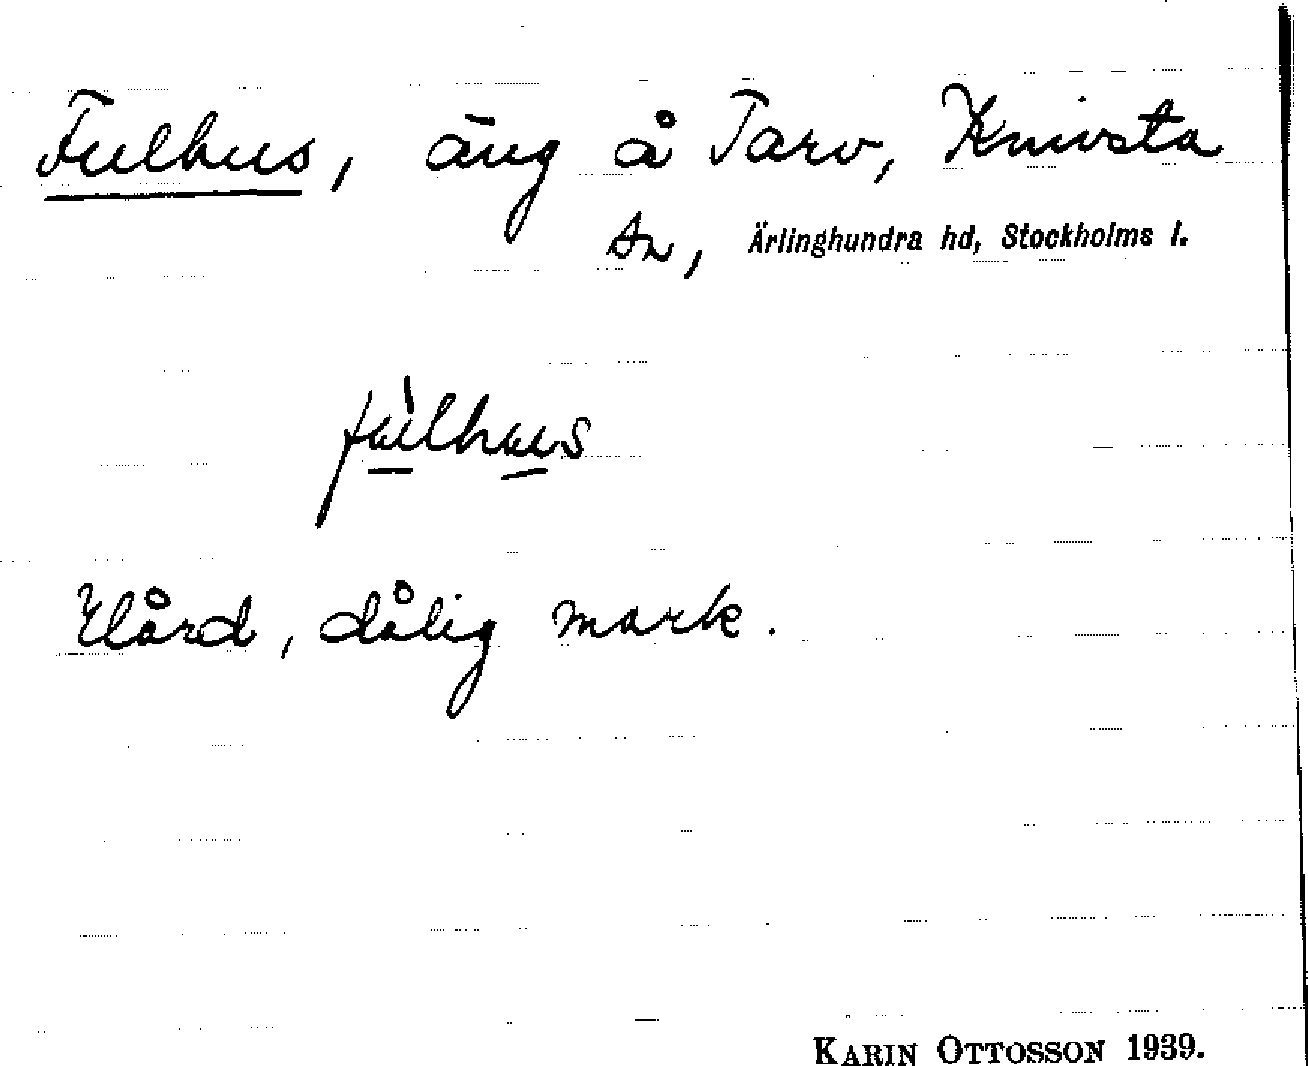 Fulhus, äng å Tarv, Knivsta
sn, Ärlinghundra hd, Stockholms l.
fùlhus
Hård, dålig mark.
KARIN OTTOSSON 1939.